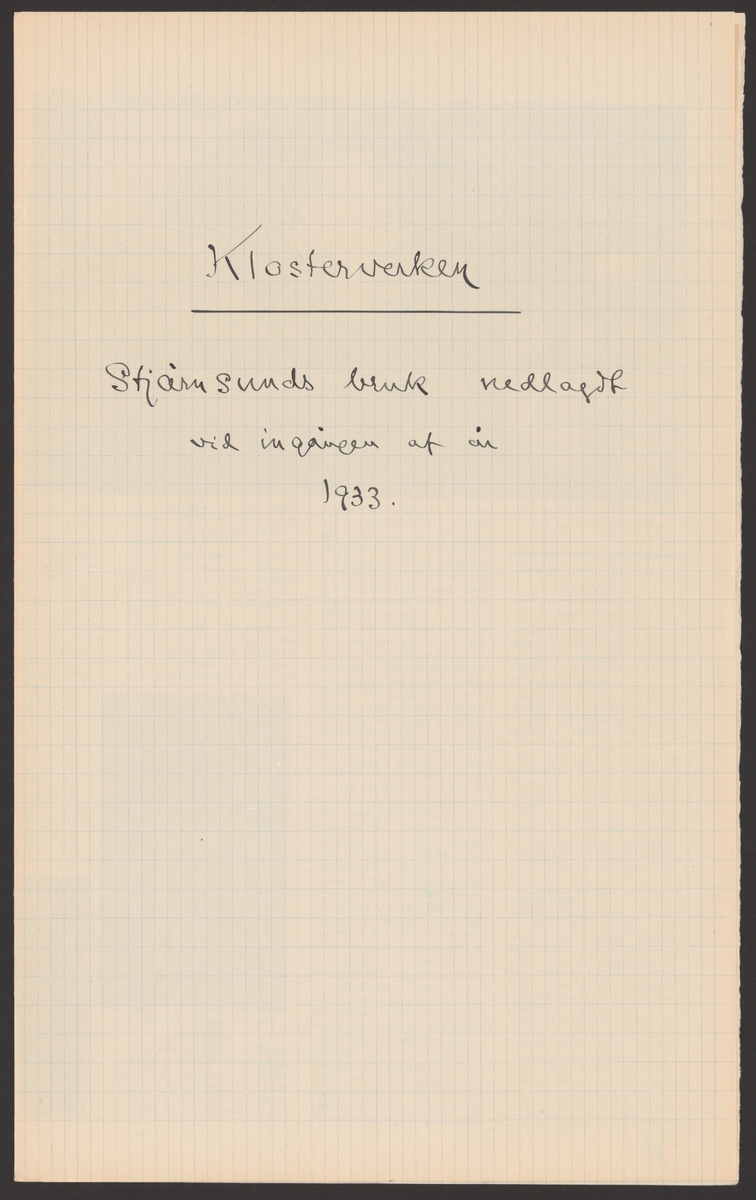 Klosterverken
Stjärnsunds bruk nedlagdt
vid ingången af år
1933.